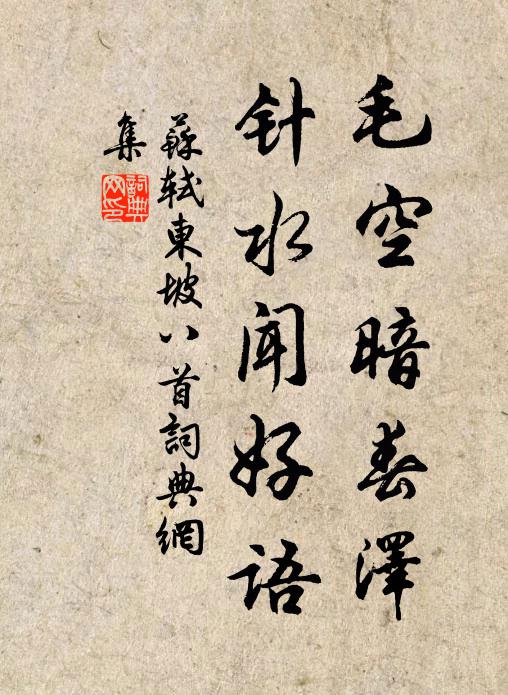 毛空暗春澤
针水闻好语
蘇軾東坡八首詞典網
集
詞典網印